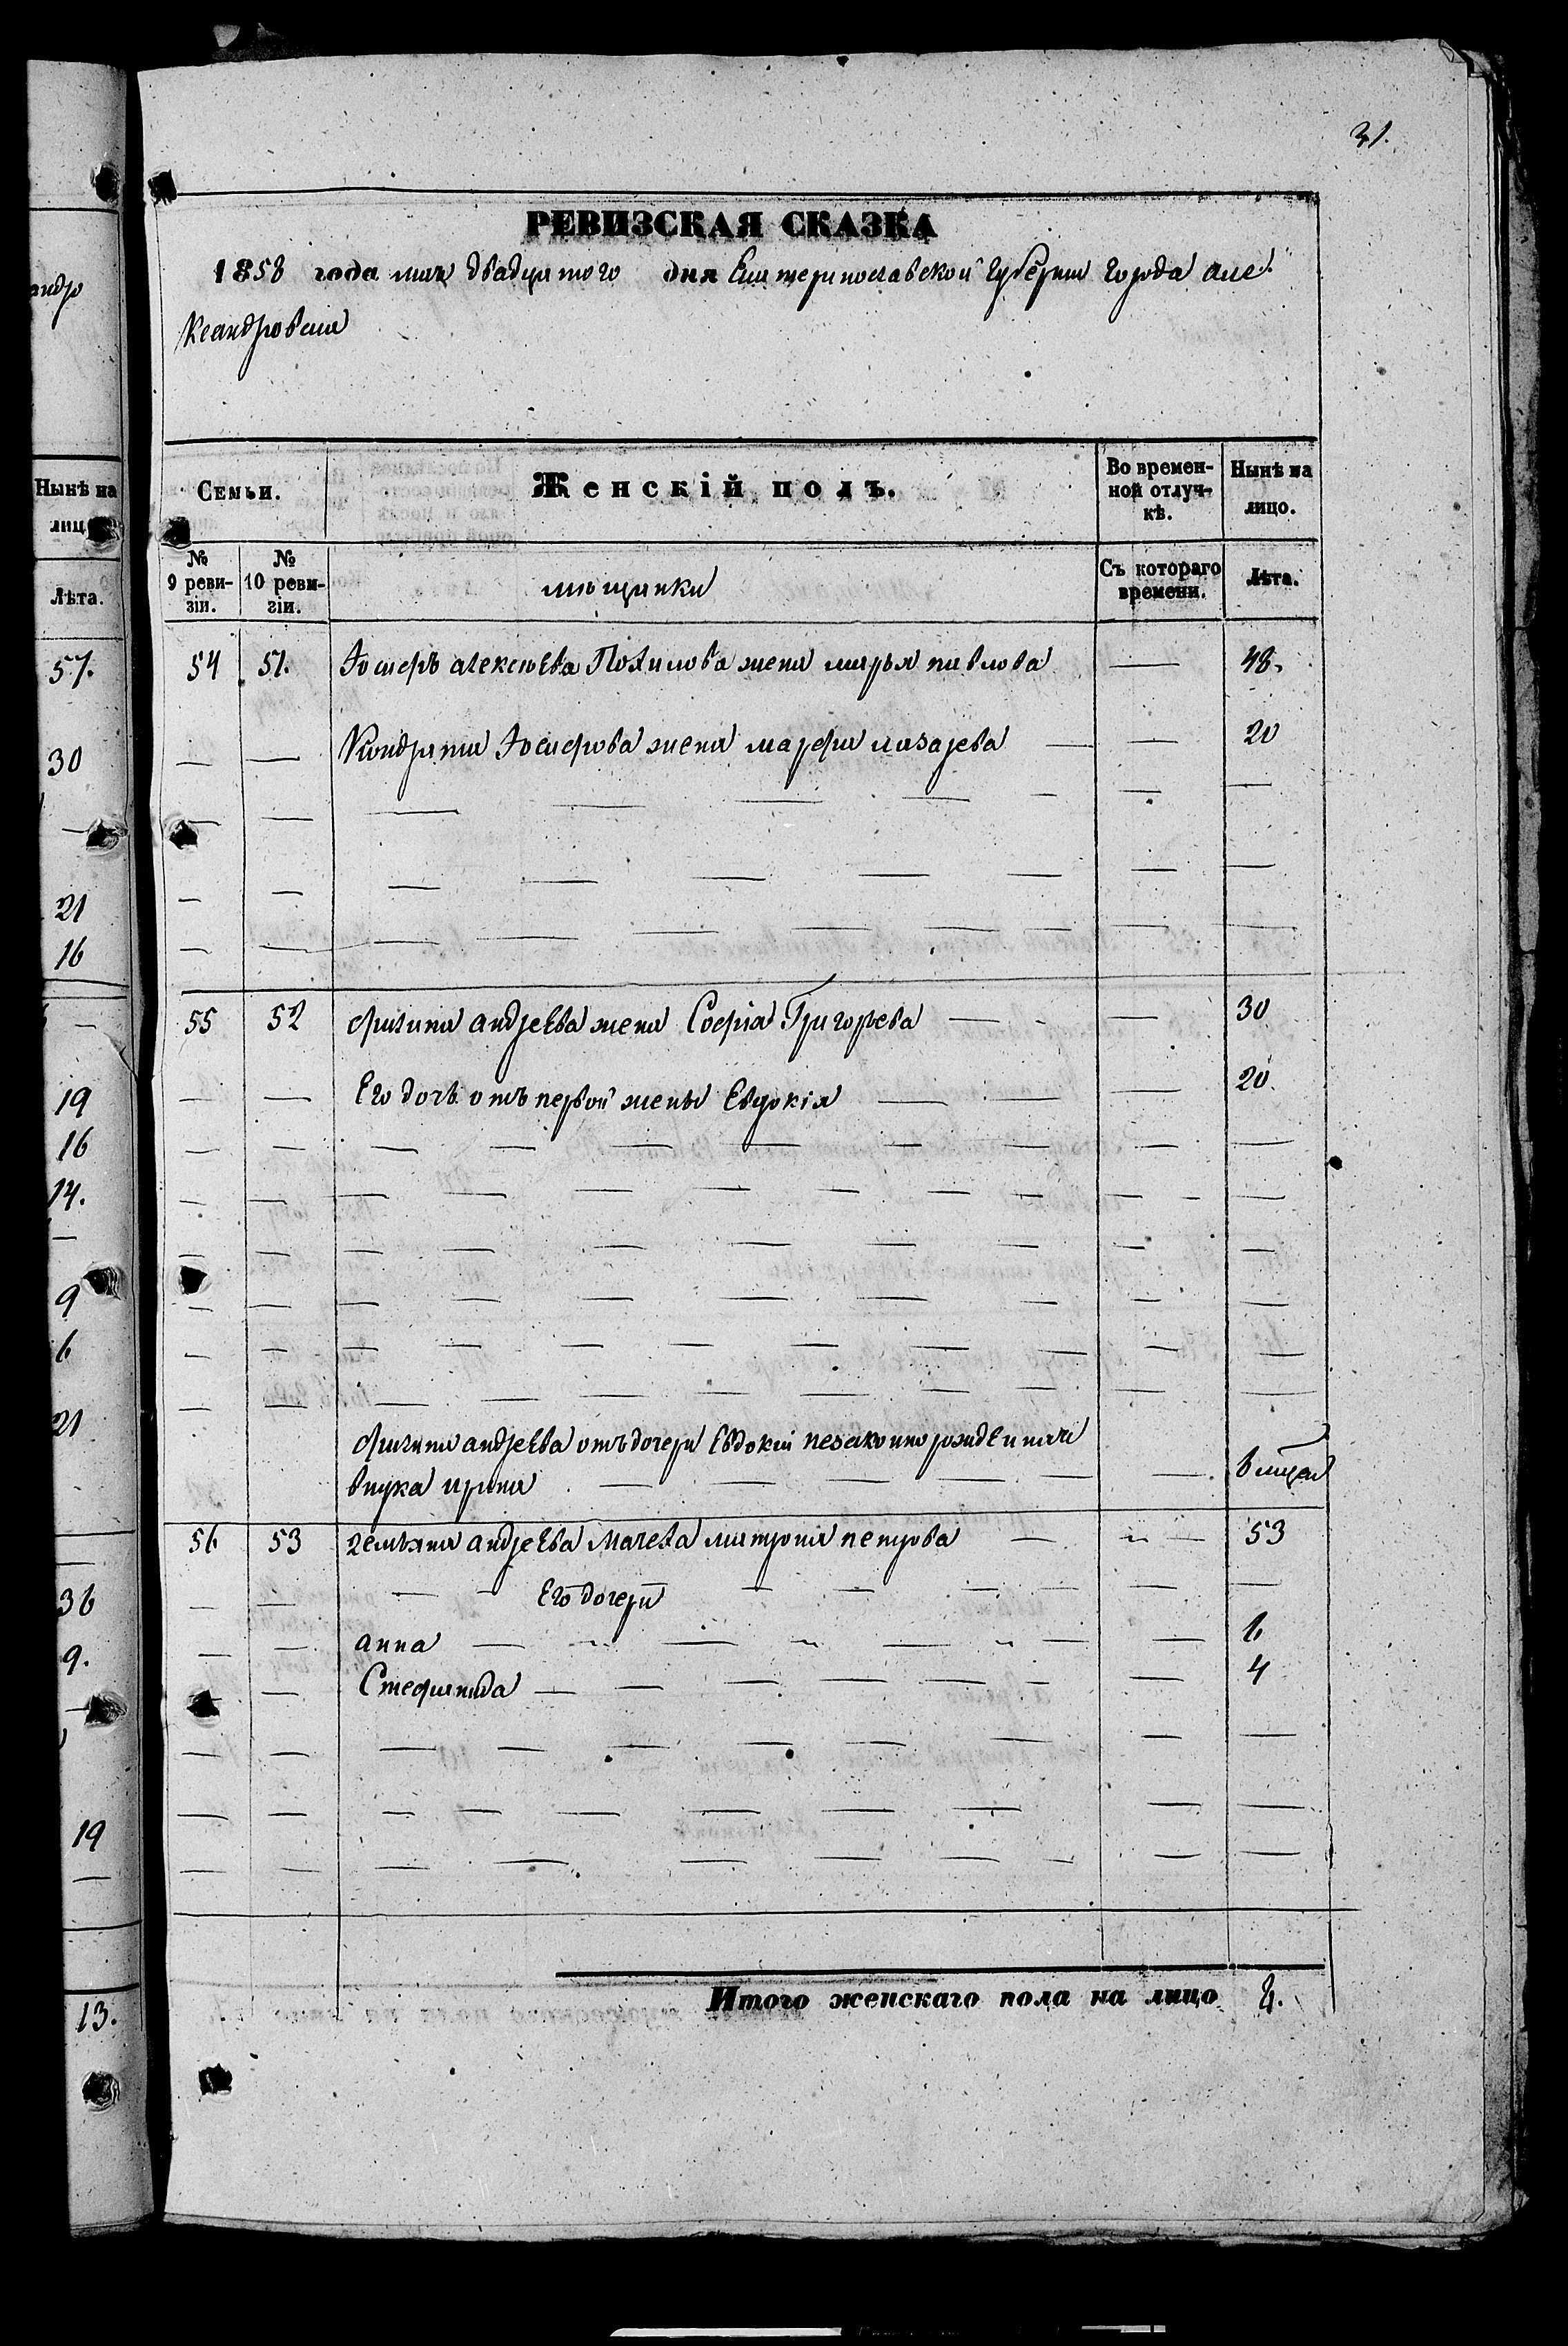 андро
Нынѣ на
лицо
Лѣта.
57.
30
21
16
19
16
14.
9
6
21
36
9.
19
13.
31.
РЕВИЗСКАЯ СКАЗКА
1858 года мая двадцатого дня Екатеринославской Губернии города Але
ксандровска
Семьи. Женскій полъ. Во времен-ной отлуч-кѣ. Нынѣ на лицо.
№ 9 реви-зіи. № 10 реви-зіи. мѣщанки Съ котораго времени. Лѣта.
54 51. Іосифъ алексѣева Похилова жена марья павлова — 48.
— — Кондрата Іосифова жена марфа лазарева — — 20
55 52 филипа андреева жена Софія Григорьева — - — 30
— — Его дочь отъ первой жены Евдокія — — — 20.
филипа андреева отъ дочери Евдокіи незаконно рожденная
внука ирина — — — — — —
56 53 андреева мачеха матрона петрова — 53
— — Его дочери
— — анна — 6
— Стефанида — 4
Итого женскаго пола на лицо